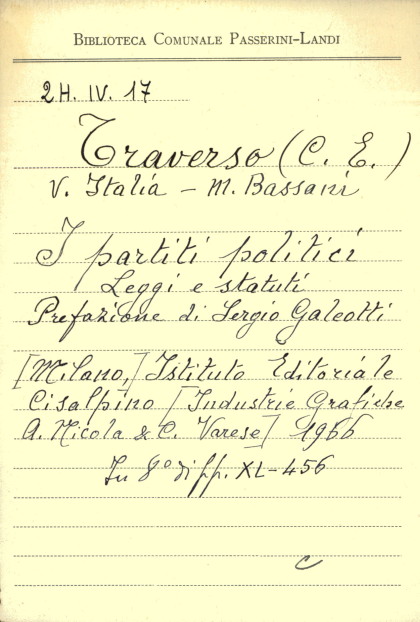 BIBLIOTECA COMUNALE PASSERINI-LANDI
2H. IV. 17
Traverso (C. E.)
V. Italia - M. Bassani
I partiti politici
Leggi e statuti
Prefazione di Sergio Galeotti
[Milano,] Istituto Editoriale
Cisalpino [Industrie Grafiche
A. Nicola & C. Varese] 1966
In 8° di pp. XL-456
C